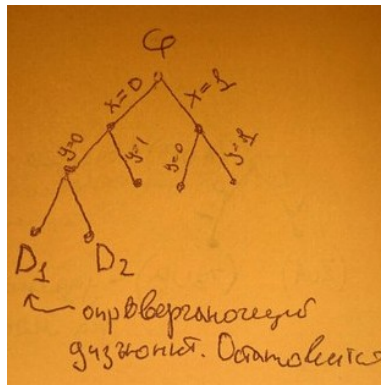 φ
x=0 x=1
y=0 y=1 y=0 y=1
D₁ D₂
← опровергающий
дизъюнкт. Остановится